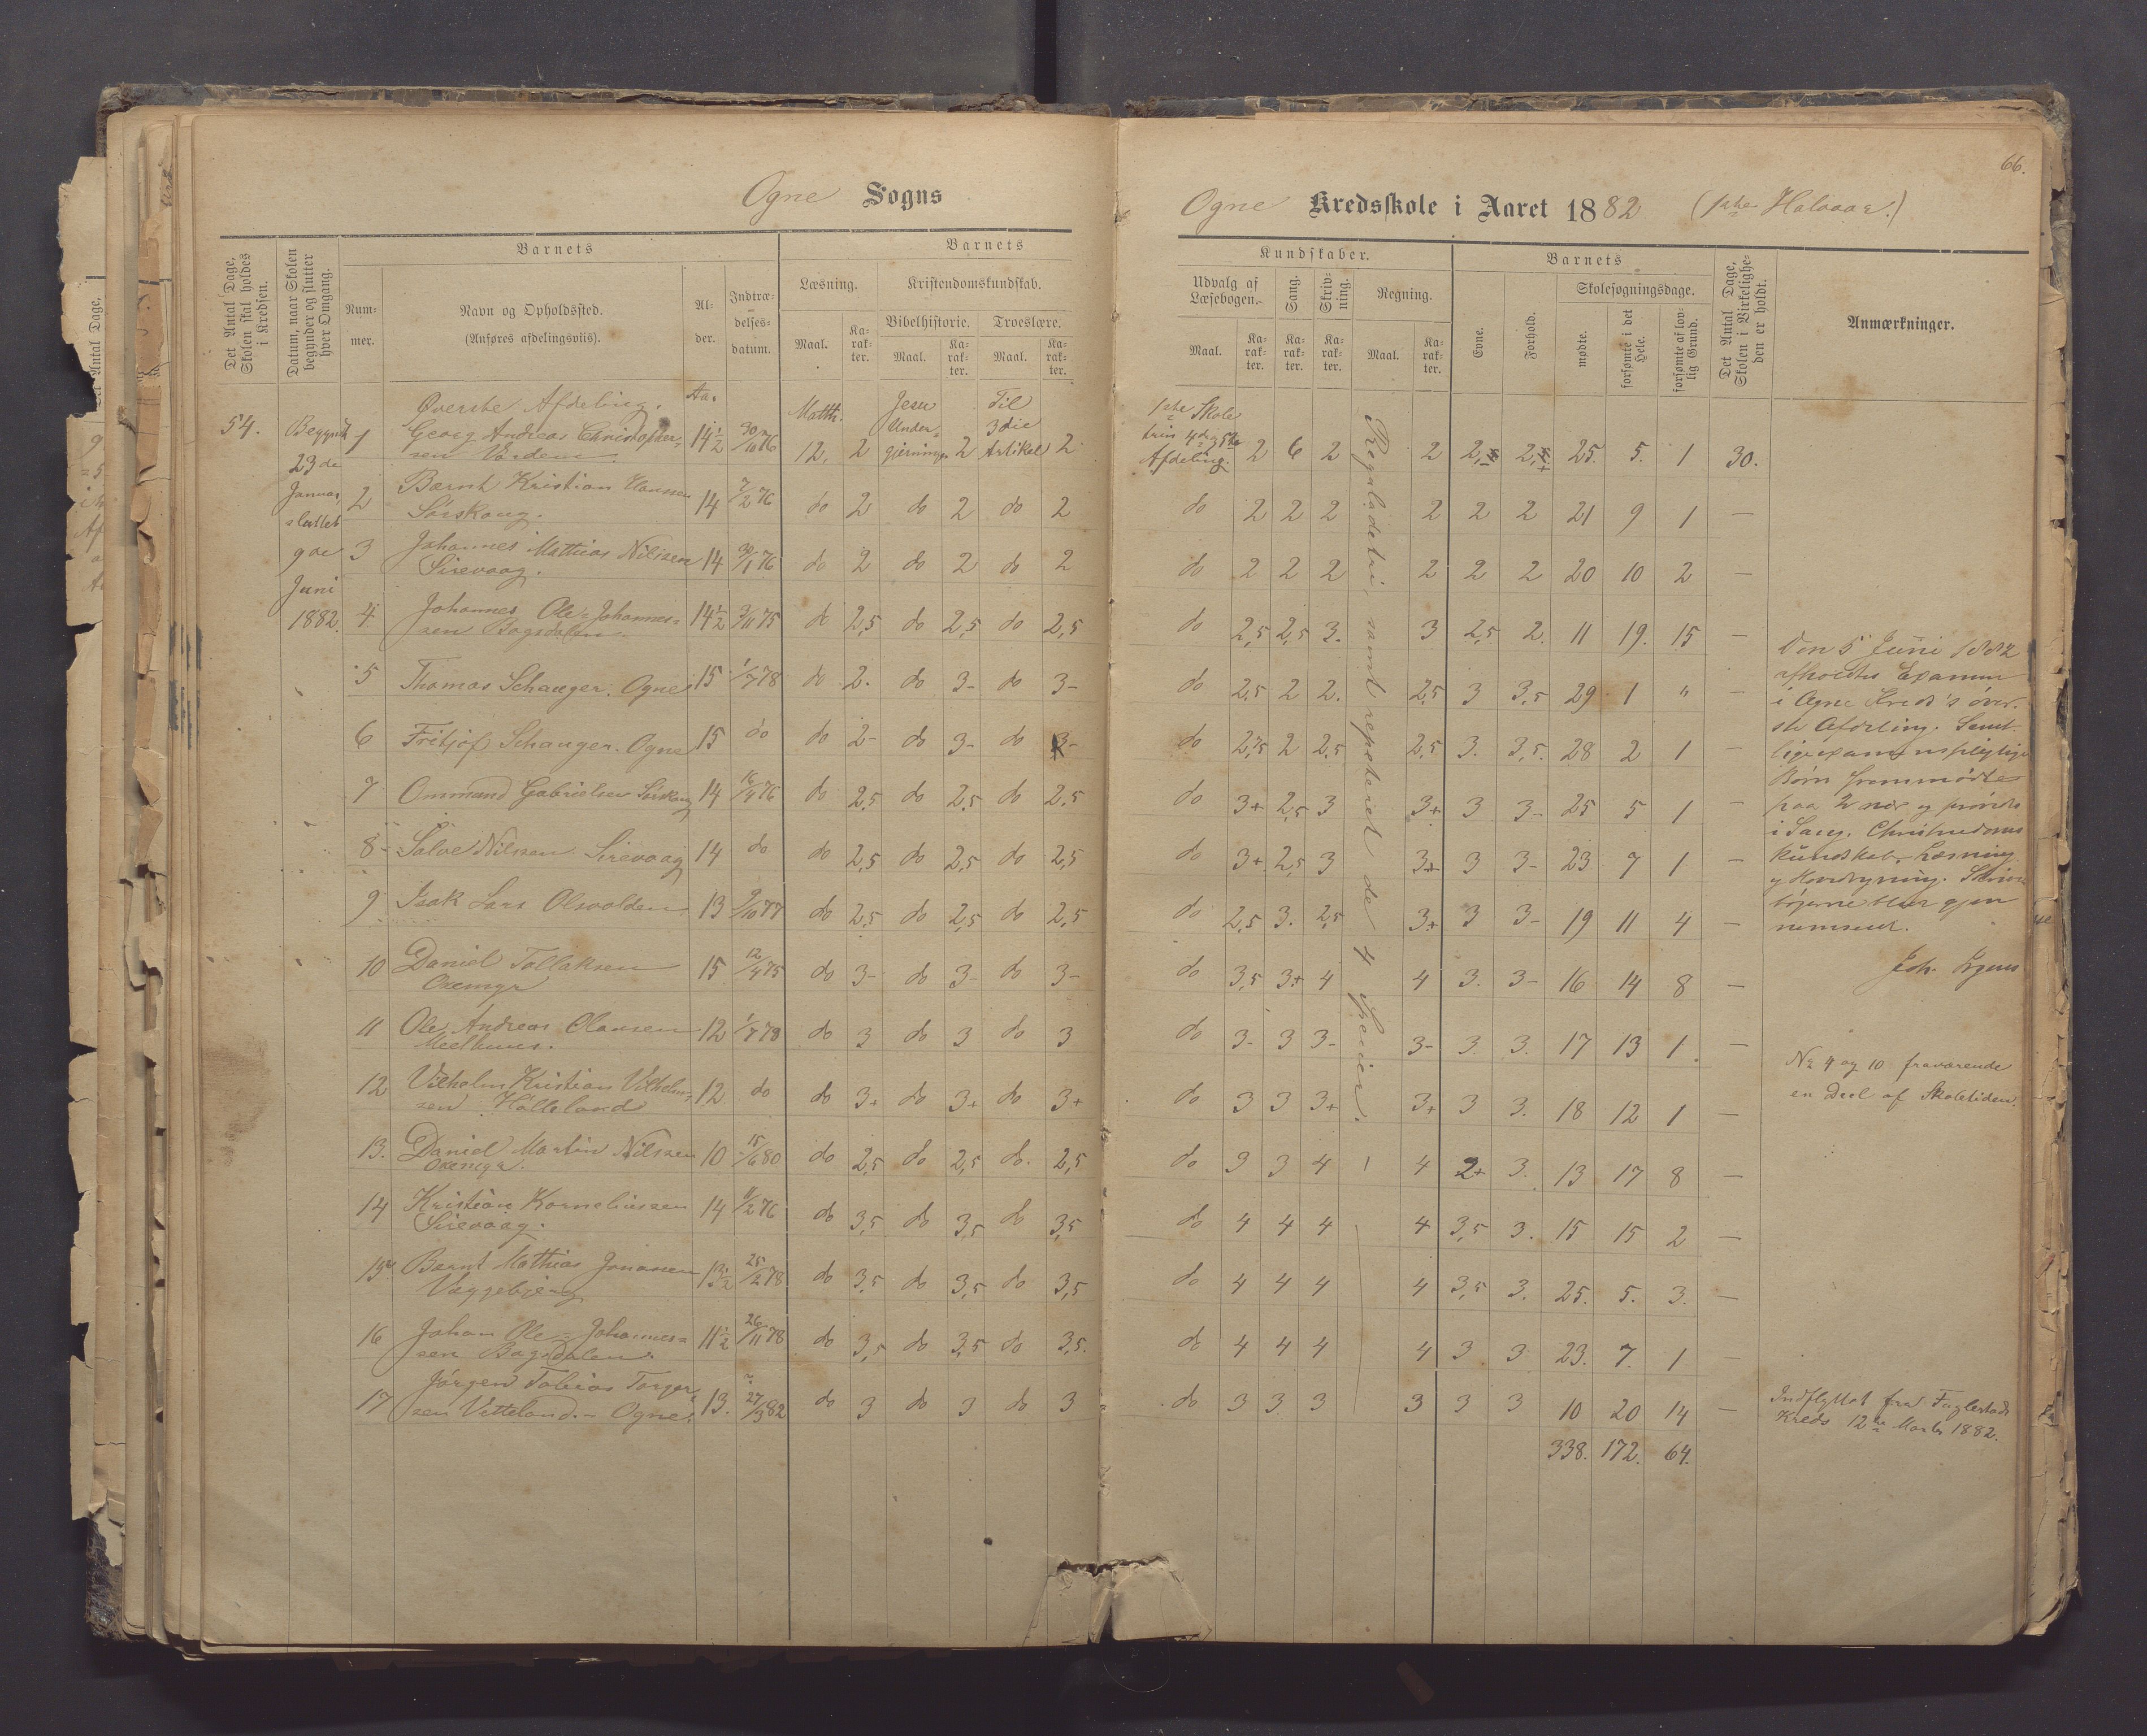 66.
Ogne Sogns
Ogne Kredsskole i Aaret 1882 (1ste Halvaar.)
Det Antal Dage, Skolen skal holdes i Kredsen.
Datum, naar Skolen begynder og slutter hver Omgang.
Barnets
Num-mer.
Navn og Opholdssted. (Anføres afdelingsviis).
Al-der.
Indtræ-delses-datum.
Barnets
Læsning.
Maal.
Ka-rak-ter.
Kristendomskundskab.
Bibelhistorie.
Maal.
Ka-rak-ter.
Troeslære.
Maal.
Ka-rak-ter.
Kundskaber.
Udvalg af Læsebogen.
Maal.
Ka-rak-ter.
Sang.
Ka-rak-ter.
Skriv-ning.
Ka-rak-ter.
Regning.
Maal.
Ka-rak-ter.
Barnets
Evne.
Forhold.
Skolesøgningsdage.
mødte.
forsømte i det Hele.
forsømte af lov-lig Grund.
Det Antal Dage, Skolen i Virkelighe-den er holdt.
Anmærkninger.
54.
Begyndt
23de
Januar,
sluttet
9de
Juni
1882.
Øverste Afdeling. Aar
1 Georg Andreas Christopher-
sen Varden. 14½ 30/10 76 Matth. 12. 2 Jesu Under-gjerninger 2 Til 3die Artikel 2 1ste Skole trin 4de & 5te Afdeling. 2 6 2 2 2, 2, 25. 5. 1 30.
Regaladetri, samt repeteret de 4 Specier.
2 Bærnt Kristian Hanssen
Sirskoug. 14 7/2 76 do 2 do 2 do 2 do 2 2 2 2 2 2 21 9 1 —
3 Johannes Mathias Nilssen
Sirevaag. 14 30/1 76 do 2 do 2 do 2 do 2 2 2 2 2 2 20 10 2 —
4 Johannes Ole Johannes=
sen Bagsdalen 14½ 3/11 75 do 2,5 do 2,5 do 2,5 do 2,5 2,5 3. 3 2,5 2. 11 19. 15 —
5 Thomas Schanger. Ogne 15 1/7 78 do 2. do 3- do 3- do 2,5 2 2. 2,5 3 3,5 29 1 " —
6 Fritjof Schanger. Ogne 15 do do 2- do 3- do 3- do 2,75 2 2,5 2,5 3. 3,5. 28 2 1 —
7 Ommund Gabrielsen Sirskoug 14 16/4 76 do 2,5 do 2,5 do 2,5 do 3+ 2,5 3 3+ 3 3- 25 5 1 —
8 Salve Nilssen Sirevaag 14 do do 2,5 do 2,5 do 2,5 do 3+ 2,5 3 3+ 3 3- 23 7 1 —
9 Isak Lars Olsvolden 13 9/10 77 do 2,5 do 2,5 do 2,5 do 2,5 3. 2,5 3+ 3 3- 19 11 4 —
10 Daniel Tollaksen
Oxemyr 15 12/4 75 do 3- do 3- do 3- do 3,5 3+ 4 4 3. 3- 16 14 8 —
11 Ole Andreas Olausen
Meelhuus. 12 1/7 78 do 3 do 3 do 3 do 3- 3 3- 3- 3. 3. 17 13 1. —
12 Vilhelm Kristian Vilhelm-
sen Hølleland 12 do do 3+ do 3+ do 3+ do 3 3 3+ 3+ 3 3. 18 12 1 —
13. Daniel Martin Nilssen
Oxemyr. 10 15/6 80 do 2,5 do 2,5 do. 2,5 do 3 3 4 4 2+ 3. 13 17 8 —
14 Kristian Korneliussen
Sirevaag. 14 11/2 76 do 3,5 do 3,5 do 3,5 do 4 4 4 4 3,5 3. 15 15 2 —
15 Bernt Mathias Jonassen
Væggebjerg 13½ 25/2 78 do 3,5 do 3,5 do 3,5 do 4 4 4 4 3,5 3. 25. 5. 3. —
16 Johan Ole Johannes=
sen Bagsdalen. 11½ 26/11 78 do 3,5 do 3,5 do 3,5. do 4 4 4 4 3 3 23. 7. 1 —
17 Jörgen Tobias Torger-
sen Vetteland. - Ogne. 13. 27/3 82 do 3 do 3 do 3 do 3 3 3 3 3 3 10 20 14 —
338. 172. 64.
Den 5 Juni 1882
afholdtes Examen
i Ogne Kreds's över-
ste Afdeling. Samt-
lige examenspligtige
Börn fremmödte
paa 2 nær og prövedes
i Sang, Christendoms
kundskab, Læsning
og Hovedregning. Skrive
bögerne blev gjen
nemseet.
Nr 4 og 10 fraværende
en Deel af Skoletiden.
Indflyttet fra Fuglestad
Kreds 12te Marts 1882.